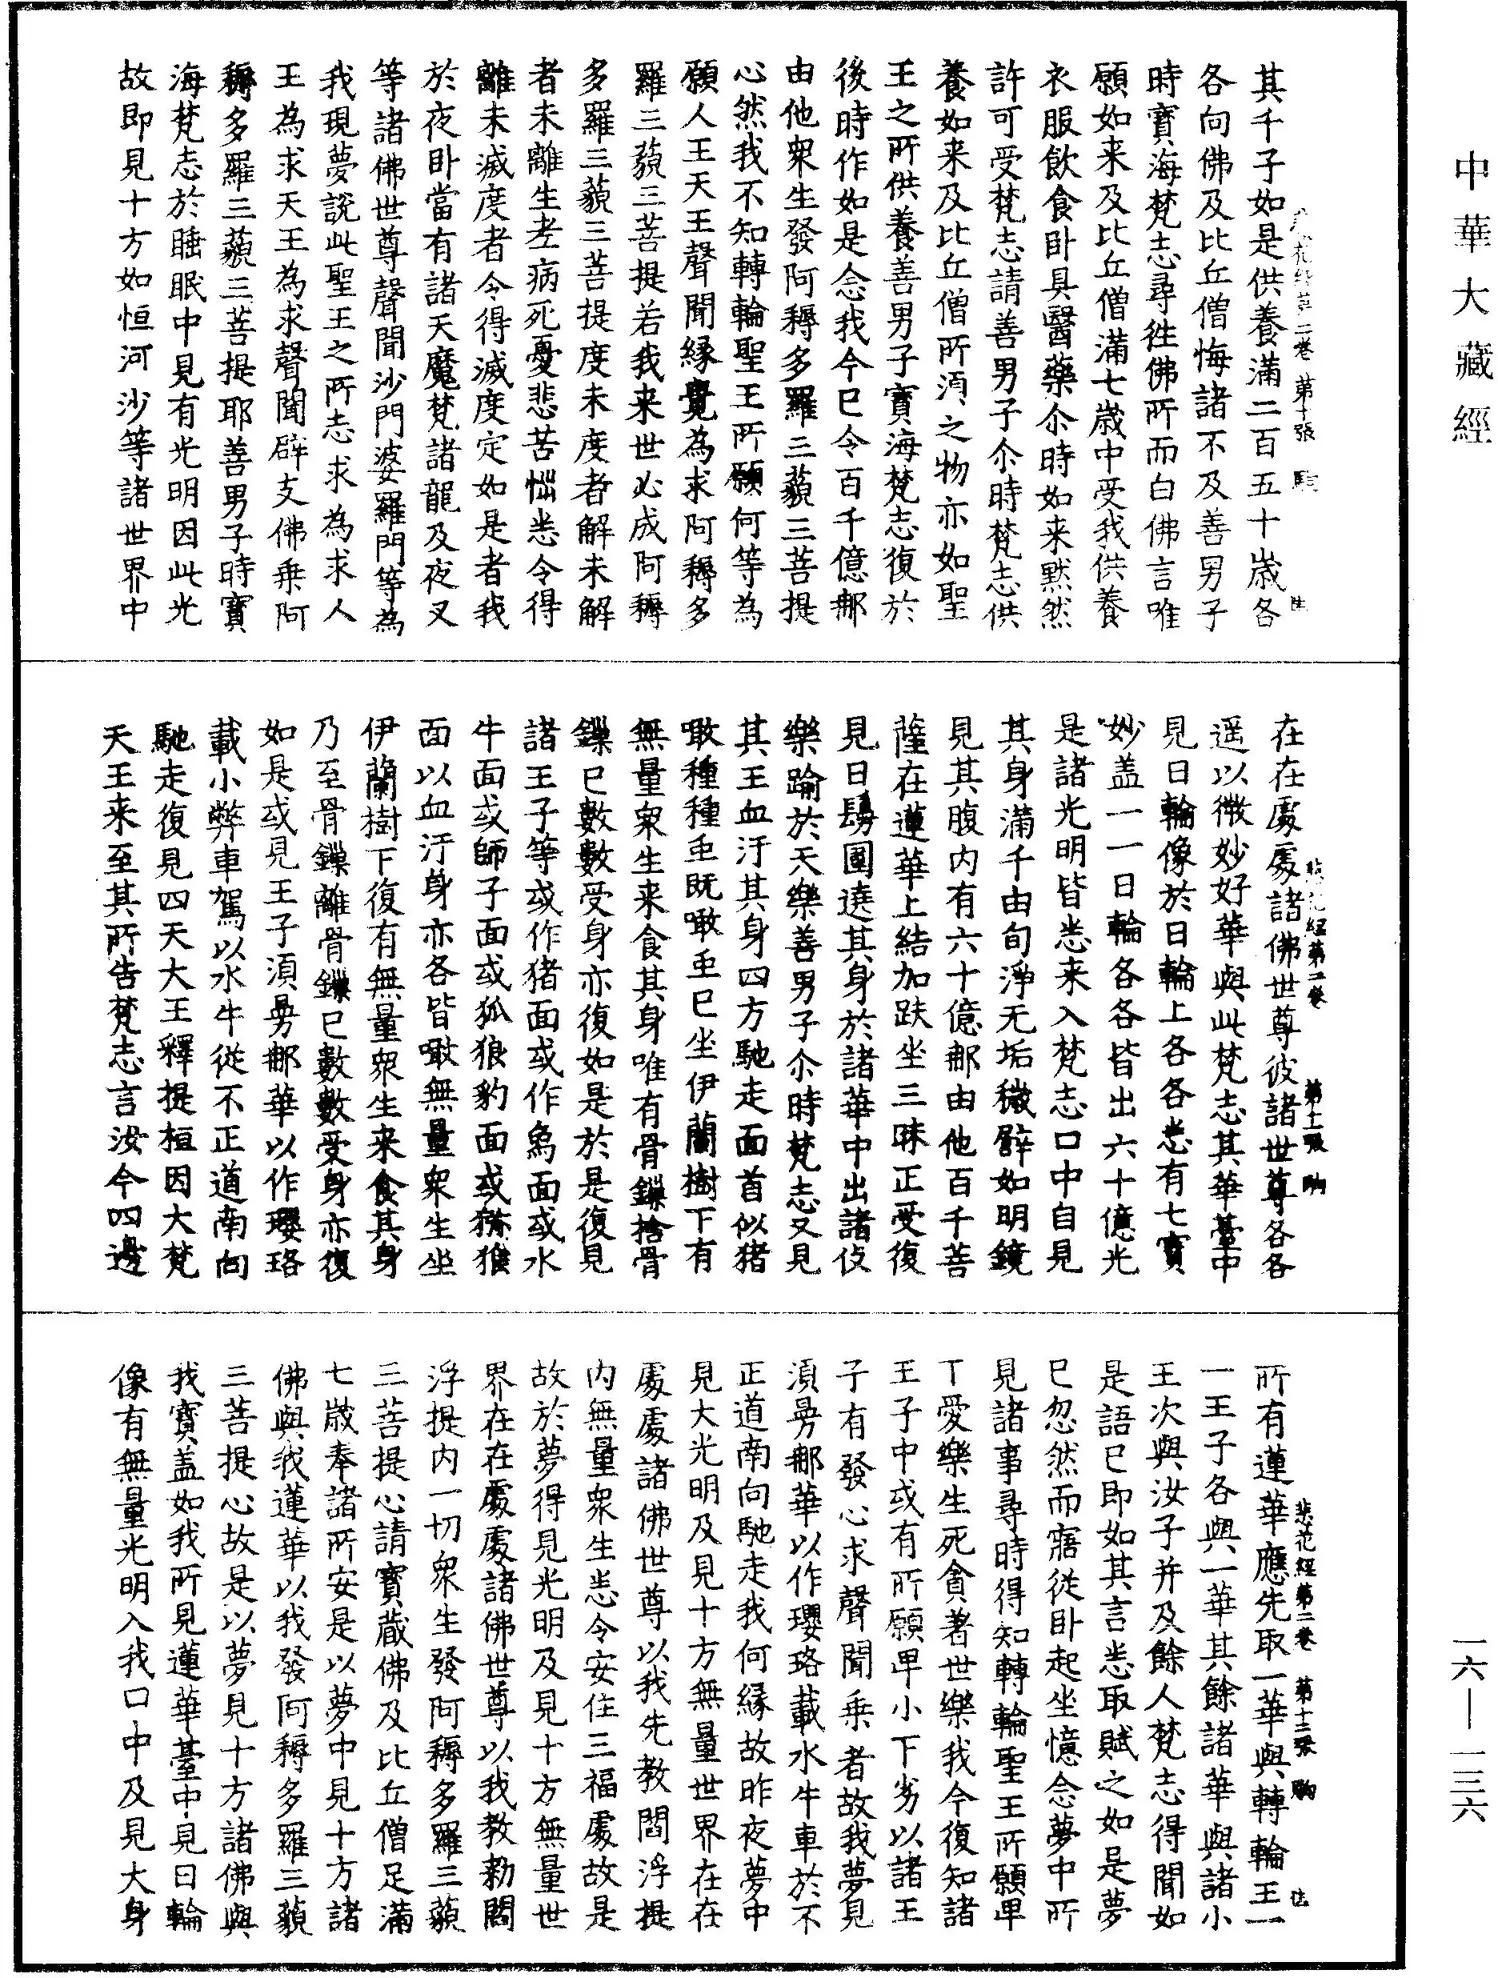 中華大藏經
其千子如是供養滿二百五十歲各
各向佛及比丘僧悔諸不及善男子
時寶海梵志尋往佛所而白佛言唯
願如来及比丘僧滿七歲中受我供養
衣服飲食卧具醫藥尒時如来默然
許可受梵志請善男子尒時梵志供
養如来及比丘僧所湏之物亦如聖
王之所供養善男子寶海梵志復於
後時作如是念我今已令百千億那
由他衆生發阿耨多羅三藐三菩提
心然我不知轉輪聖王所願何等為
願人王天王聲聞緣覺為求阿耨多
羅三藐三菩提若我来世必成阿耨
多羅三藐三菩提度未度者解未解
者未離生老病死憂悲苦惱悉令得
離未滅度者令得滅度定如是者我
於夜卧當有諸天魔梵諸龍及夜叉
等諸佛世尊聲聞沙門婆羅門等為
我現夢說此聖王之所志求為求人
王為求天王為求聲聞辟支佛乗阿
耨多羅三藐三菩提耶善男子時寶
海梵志於睡眠中見有光明因此光
故即見十方如恒河沙等諸世界中
在在處處諸佛世尊彼諸世尊各各
遥以微妙好華與此梵志其華臺中
見日輪像於日輪上各各悉有七寶
妙盖一一日輪各各皆出六十億光
是諸光明皆悉来入梵志口中自見
其身滿千由旬淨无垢穢譬如明鏡
見其腹内有六十億那由他百千菩
薩在蓮華上結加趺坐三昧正受復
見日鬘圍遶其身於諸華中出諸伎
樂踰於天樂善男子尒時梵志又見
其王血汙其身四方馳走面首似猪
噉種種虫既噉虫已坐伊蘭樹下有
無量衆生来食其身唯有骨鏁捨骨
鏁已數數受身亦復如是於是復見
諸王子等或作猪面或作鳥面或水
牛面或師子面或狐狼豹面或猕猴
面以血汙身亦各皆噉無量衆生坐
伊蘭樹下復有無量衆生来食其身
乃至骨鏁離骨鏁已數數受身亦復
如是或見王子湏曼那華以作瓔珞
載小弊車駕以水牛從不正道南向
馳走復見四天大王釋提桓因大梵
天王来至其所告梵志言汝今四邊
所有蓮華應先取一華與轉輪王一
一王子各與一華其餘諸華與諸小
王次與汝子并及餘人梵志得聞如
是語已即如其言悉取賦之如是夢
已忽然而寤從卧起坐憶念夢中所
見諸事尋時得知轉輪聖王所願卑
下愛樂生死貪著世樂我今復知諸
王子中或有所願卑小下劣以諸王
子有發心求聲聞乗者故我夢見
湏曼那華以作瓔珞載水牛車於不
正道南向馳走我何緣故昨夜夢中
見大光明及見十方無量世界在在
處處諸佛世尊以我先教閻浮提
内無量衆生悉令安住三福處故是
故於夢得見光明及見十方無量世
界在在處處諸佛世尊以我教勑閻
浮提内一切衆生發阿耨多羅三藐
三菩提心請寶藏佛及比丘僧足滿
七歲奉諸所安是以夢中見十方諸
佛與我蓮華以我發阿耨多羅三藐
三菩提心故是以夢見十方諸佛與
我寶盖如我所見蓮華臺中見日輪
像有無量光明入我口中及見大身
悲花經第二卷 第十三張
一六—一三六